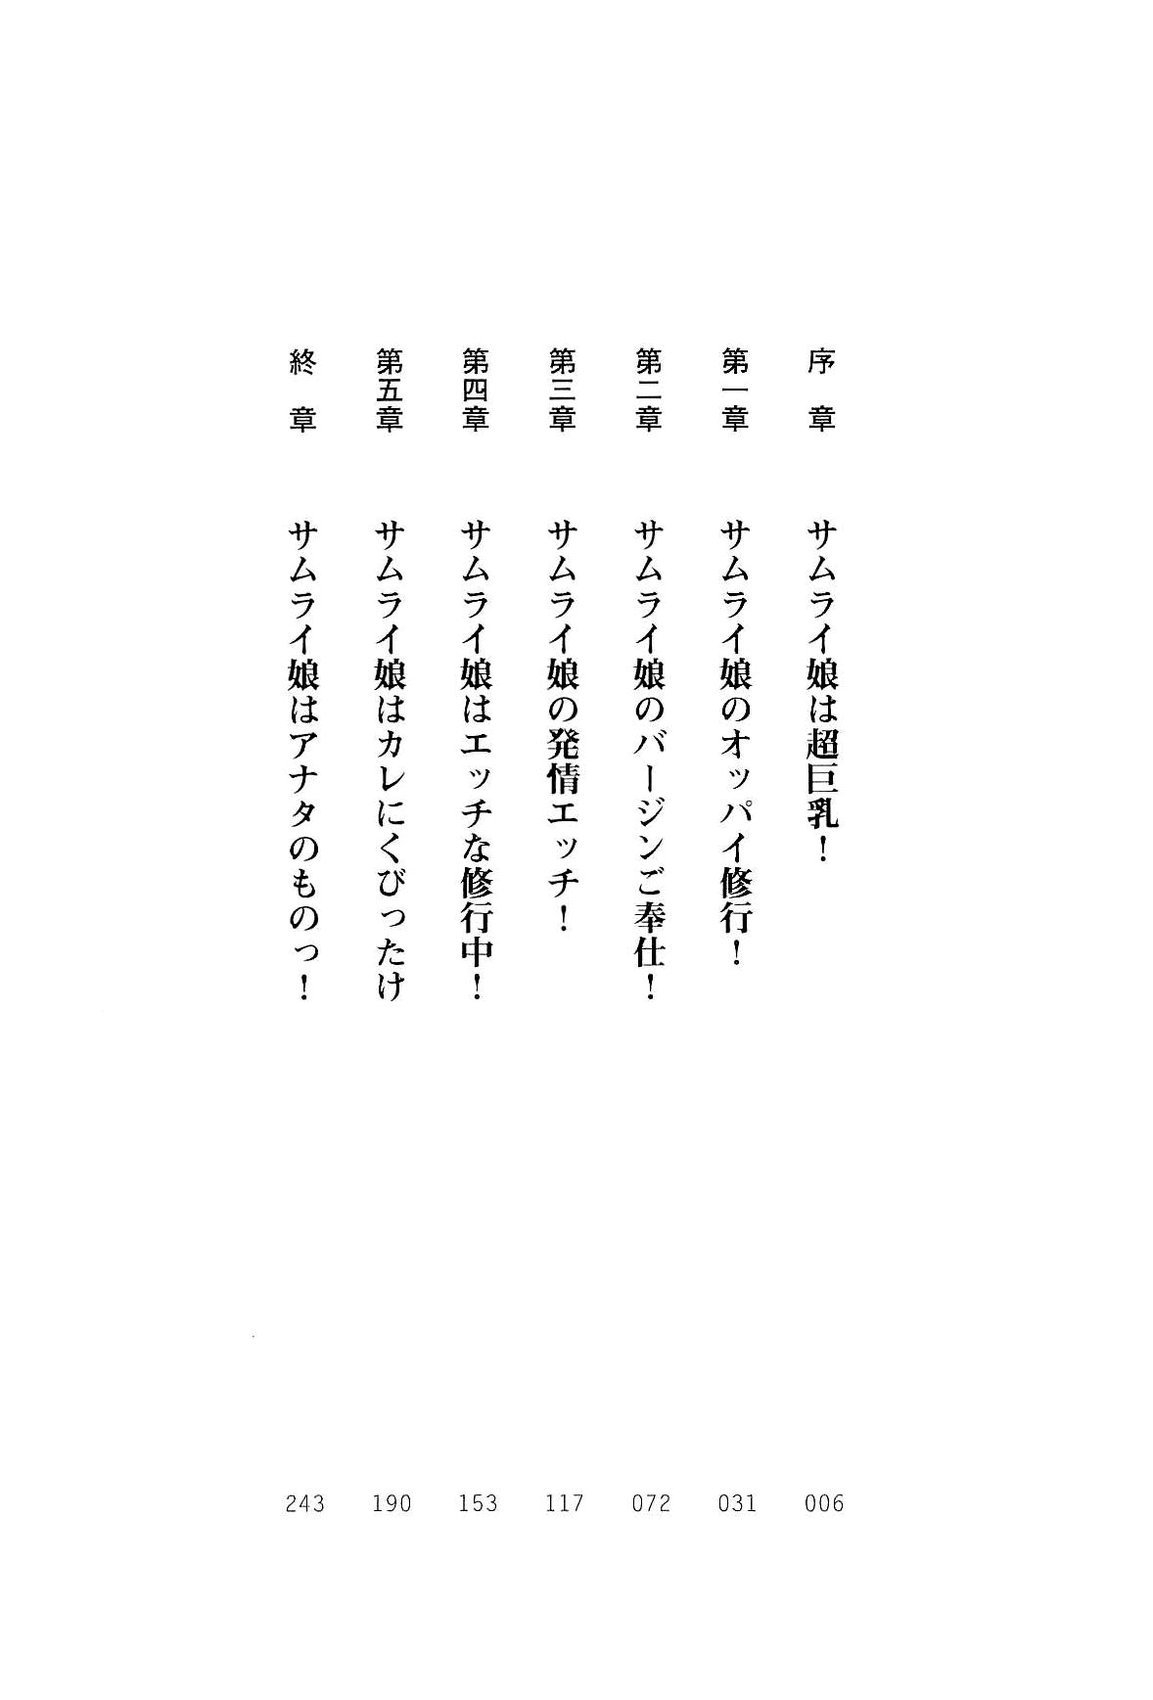 序　章　サムライ娘は超巨乳！　006
第一章　サムライ娘のオッパイ修行！　031
第二章　サムライ娘のバージンご奉仕！　072
第三章　サムライ娘の発情エッチ！　117
第四章　サムライ娘はエッチな修行中！　153
第五章　サムライ娘はカレにくびったけ　190
終　章　サムライ娘はアナタのものっ！　243